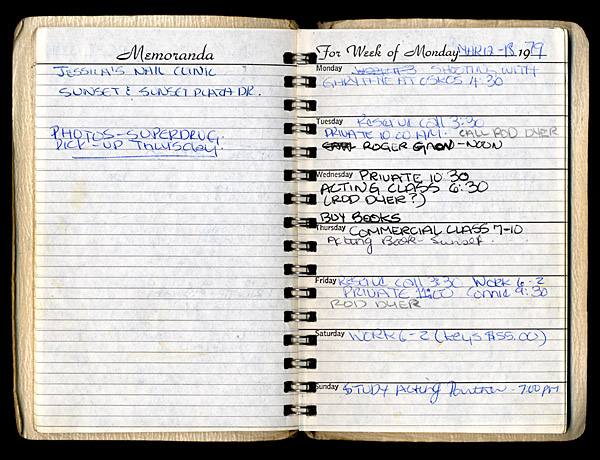 Memoranda
JESSICA'S NAIL CLINIC
SUNSET & SUNSET PLAZA DR.
PHOTOS - SUPERDRUG.
PICK-UP THURSday.
For Week of Monday MAR 12-18 1979
Monday SHOOTING WITH
AT 4:30
Tuesday call 3:30
PRIVATE 10:00 AM. CALL ROD DYER
ROGER - NOON
Wednesday PRIVATE 10:30
ACTING CLASS 6:30
(ROD DYER?)
BUY BOOKS
Thursday COMMERCIAL CLASS 7-10
Acting Book - Sunset.
Friday call 3:30 WORK 6-2
PRIVATE 9:30
ROD DYER
Saturday WORK 6-2 (keys $55.00)
Sunday STUDY Acting - 7:00 PM